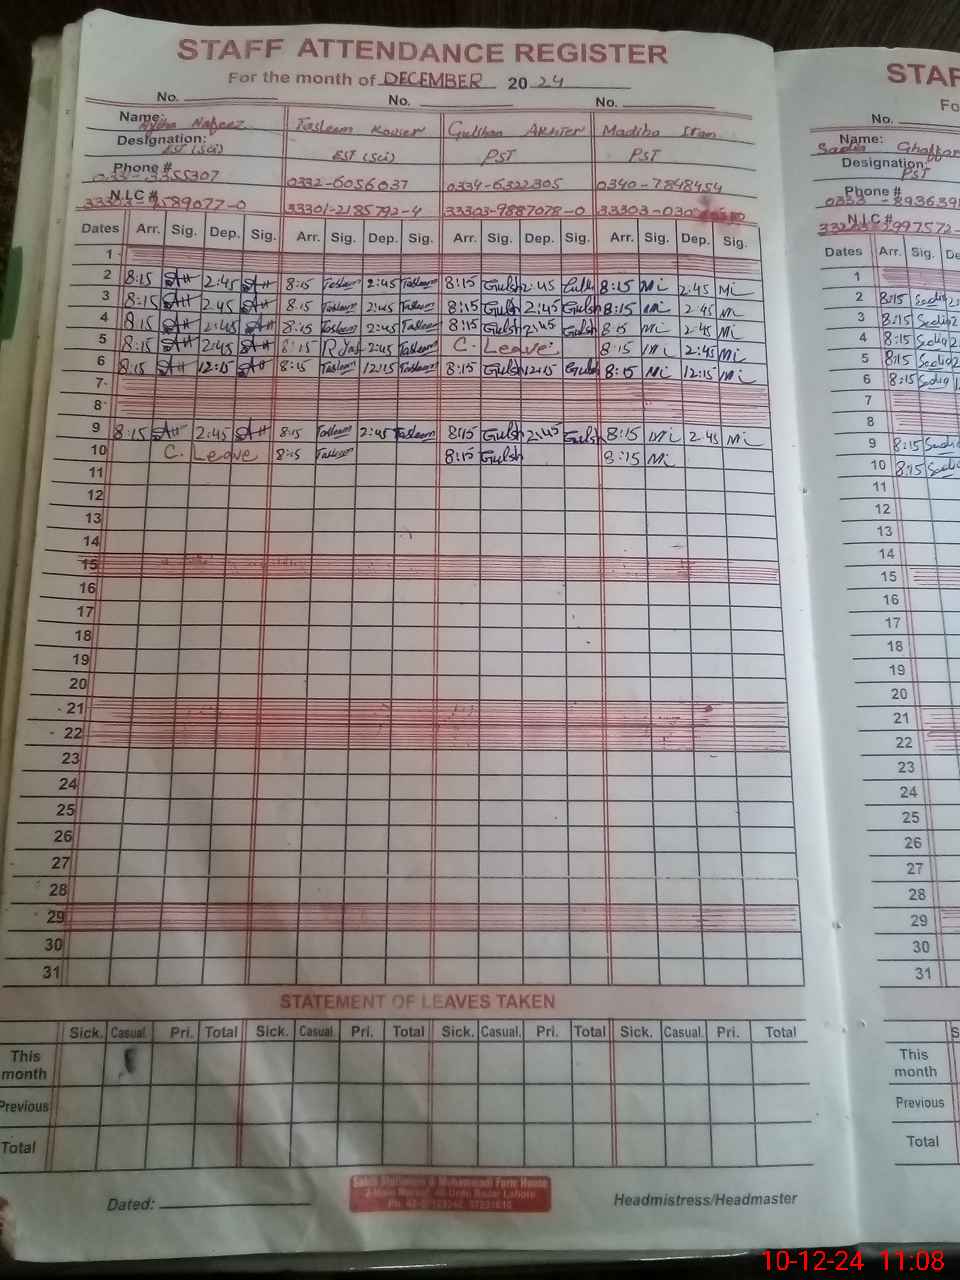 STAFF ATTENDANCE REGISTER
For the month of DECEMBER 2024
No. No. No.
Name: Nafeez Tasleem Kouser Gulshan Akhter Madiha
Designation: EST (Sci) EST (Sci) PST PST
Phone # 0332-6056037 0334-6322305 0340-7848454
N.I.C # 33301-2185792-4 33303-9887078-0
Dates Arr. Sig. Dep. Sig. Arr. Sig. Dep. Sig. Arr. Sig. Dep. Sig. Arr. Sig. Dep. Sig.
1
2 8:15 2:45 8:15 Tasleem 2:45 Tasleem 8:15 Gulsh 2:45 8:15 Mi 2:45 Mi
3 8:15 2:45 8:15 Tasleem 2:45 Tasleem 8:15 Gulsh 2:45 Gulsh 8:15 Mi 2:45 Mi
4 8:15 2:45 8:15 Tasleem 2:45 Tasleem 8:15 Gulsh 2:45 Gulsh 8:15 Mi 2:45 Mi
5 8:15 2:45 8:15 2:45 Tasleem C. Leave 8:15 Mi 2:45 Mi
6 8:15 12:15 8:15 Tasleem 12:15 Tasleem 8:15 Gulsh 12:15 Gulsh 8:15 Mi 12:15 Mi
7
8
9 8:15 2:45 8:15 Tasleem 2:45 Tasleem 8:15 Gulsh 2:45 Gulsh 8:15 Mi 2:45 Mi
10 C. Leave 8:15 Tasleem 8:15 Gulsh 8:15 Mi
11
12
13
14
15
16
17
18
19
20
21
22
23
24
25
26
27
28
29
30
31
STATEMENT OF LEAVES TAKEN
Sick. Casual. Pri. Total Sick. Casual. Pri. Total Sick. Casual. Pri. Total Sick. Casual. Pri. Total
This month
Previous
Total
Dated:
Headmistress/Headmaster
STAF
Fo
No.
Name: Sadia Ghaffar
Designation: PST
Phone #
N.I.C #
Dates Arr. Sig. De
1
2 8:15 Sadia
3 8:15 Sadia
4 8:15 Sadia
5 8:15 Sadia
6 8:15 Sadia
7
8
9 8:15 Sadia
10 8:15 Sadia
11
12
13
14
15
16
17
18
19
20
21
22
23
24
25
26
27
28
29
30
31
This month
Previous
Total
10-12-24 11:08